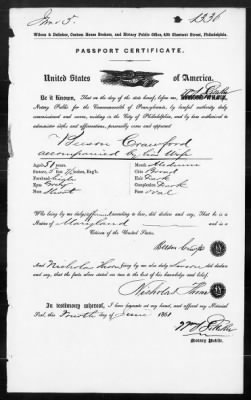 1336
Wilbur & Dellaker, Custom House Brokers, and Notary Public Office, 435 Chestnut Street, Philadelphia.
PASSPORT CERTIFICATE.
United States of America.
Be it Known, That on the day of the date hereof, before me,
Notary Public for the Commonwealth of Pennsylvania, by lawful authority duly
commissioned and sworn, residing in the City of Philadelphia, and by law authorized to
administer oaths and affirmations, personally came and appeared
Crawford
accompanied by his Wife
Age, 51 years. Mouth, Medium
Stature, 5 feet Inches, Eng'h Chin, Broad
Forehead, High Hair, Dark
Eyes, Complexion, Dark
Nose, Short Face, oval
Who being by me duly affirmed according to law, did declare and say, that he is a
Native of Maryland and a
Citizen of the United States.
Nicholas being by me also duly Sworn, did declare
and say, that the facts above stated are true to the best of his knowledge and belief.
Nicholas
In testimony whereof, I have hereunto set my hand, and affixed my Notarial
Seal, this Fourth day of June 1881
Notary Public.